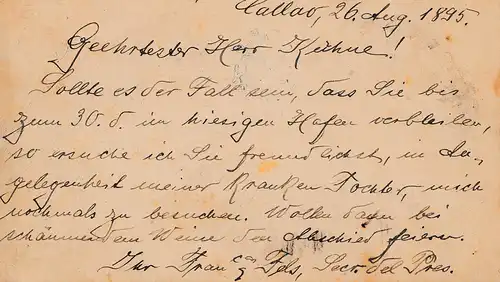 Callao, 26. Aug. 1895.
Geehrtester Herr Kühne!
Sollte es der Fall sein, dass Sie bis
zum 30. d. im hiesigen Hafen verbleiben,
so ersuche ich Sie freundlichst, in An-
gelegenheit meiner kranken Tochter, mich
nochmals zu besuchen. Wollen dann bei
schäumendem Weine den Abschied feiern.
Ihr Fran^cos Fels, Secr. del Pres.